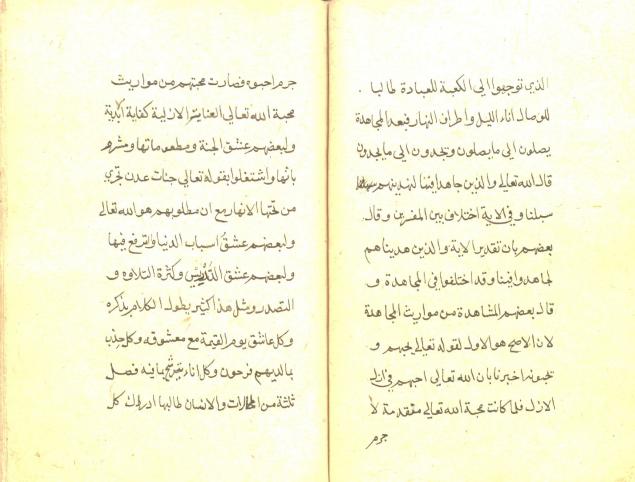 الذي توجهوا الى الكعبة للعبادة طالبا
للوصال اناء الليل واطراف النهار فبعد المجاهدة
يصلون الى ما يصلون ويجدون الى ما يجدون
قال الله تعالى والذين جاهدوا فينا لنهدينهم
سبلنا وفي الاية اختلاف بين المفسرين وقال
بعضهم بان تقدير الاية والذين هديناهم
لجاهدوا فينا وقد اختلفوا في المجاهدة و
قال بعضهم المشاهدة من مواريث المجاهدة
لان الاصح هو الاول لقوله تعالى يحبهم و
يحبونه اخبرنا بان الله تعالى احبهم في
الازل فلما كانت محبة الله تعالى متقدمة لا
جرم
جرم احبوه فصارت محبتهم من مواريث
محبة الله تعالى العناية الازلية كفاية الابدية
ولبعضهم عشق الجنة ومطعوماتها ومشر
باتها واشتغلوا بقوله تعالى جنات عدن تجري
من تحتها الانهار مع ان مطلوبهم هو الله تعالى
ولبعضهم عشق اسباب الدنيا والترفع فيها
ولبعضهم عشق التدريس وكثرة التلاوه و
التصدر ومثل هذا كثير يطول الكلام بذكره
وكل عاشق يوم القيمة مع معشوقه وكل حزب
بما لديهم فرحون وكل اناء يترشح بما فيه فصل
ثلثة من والانسان طالبها ادراك كل